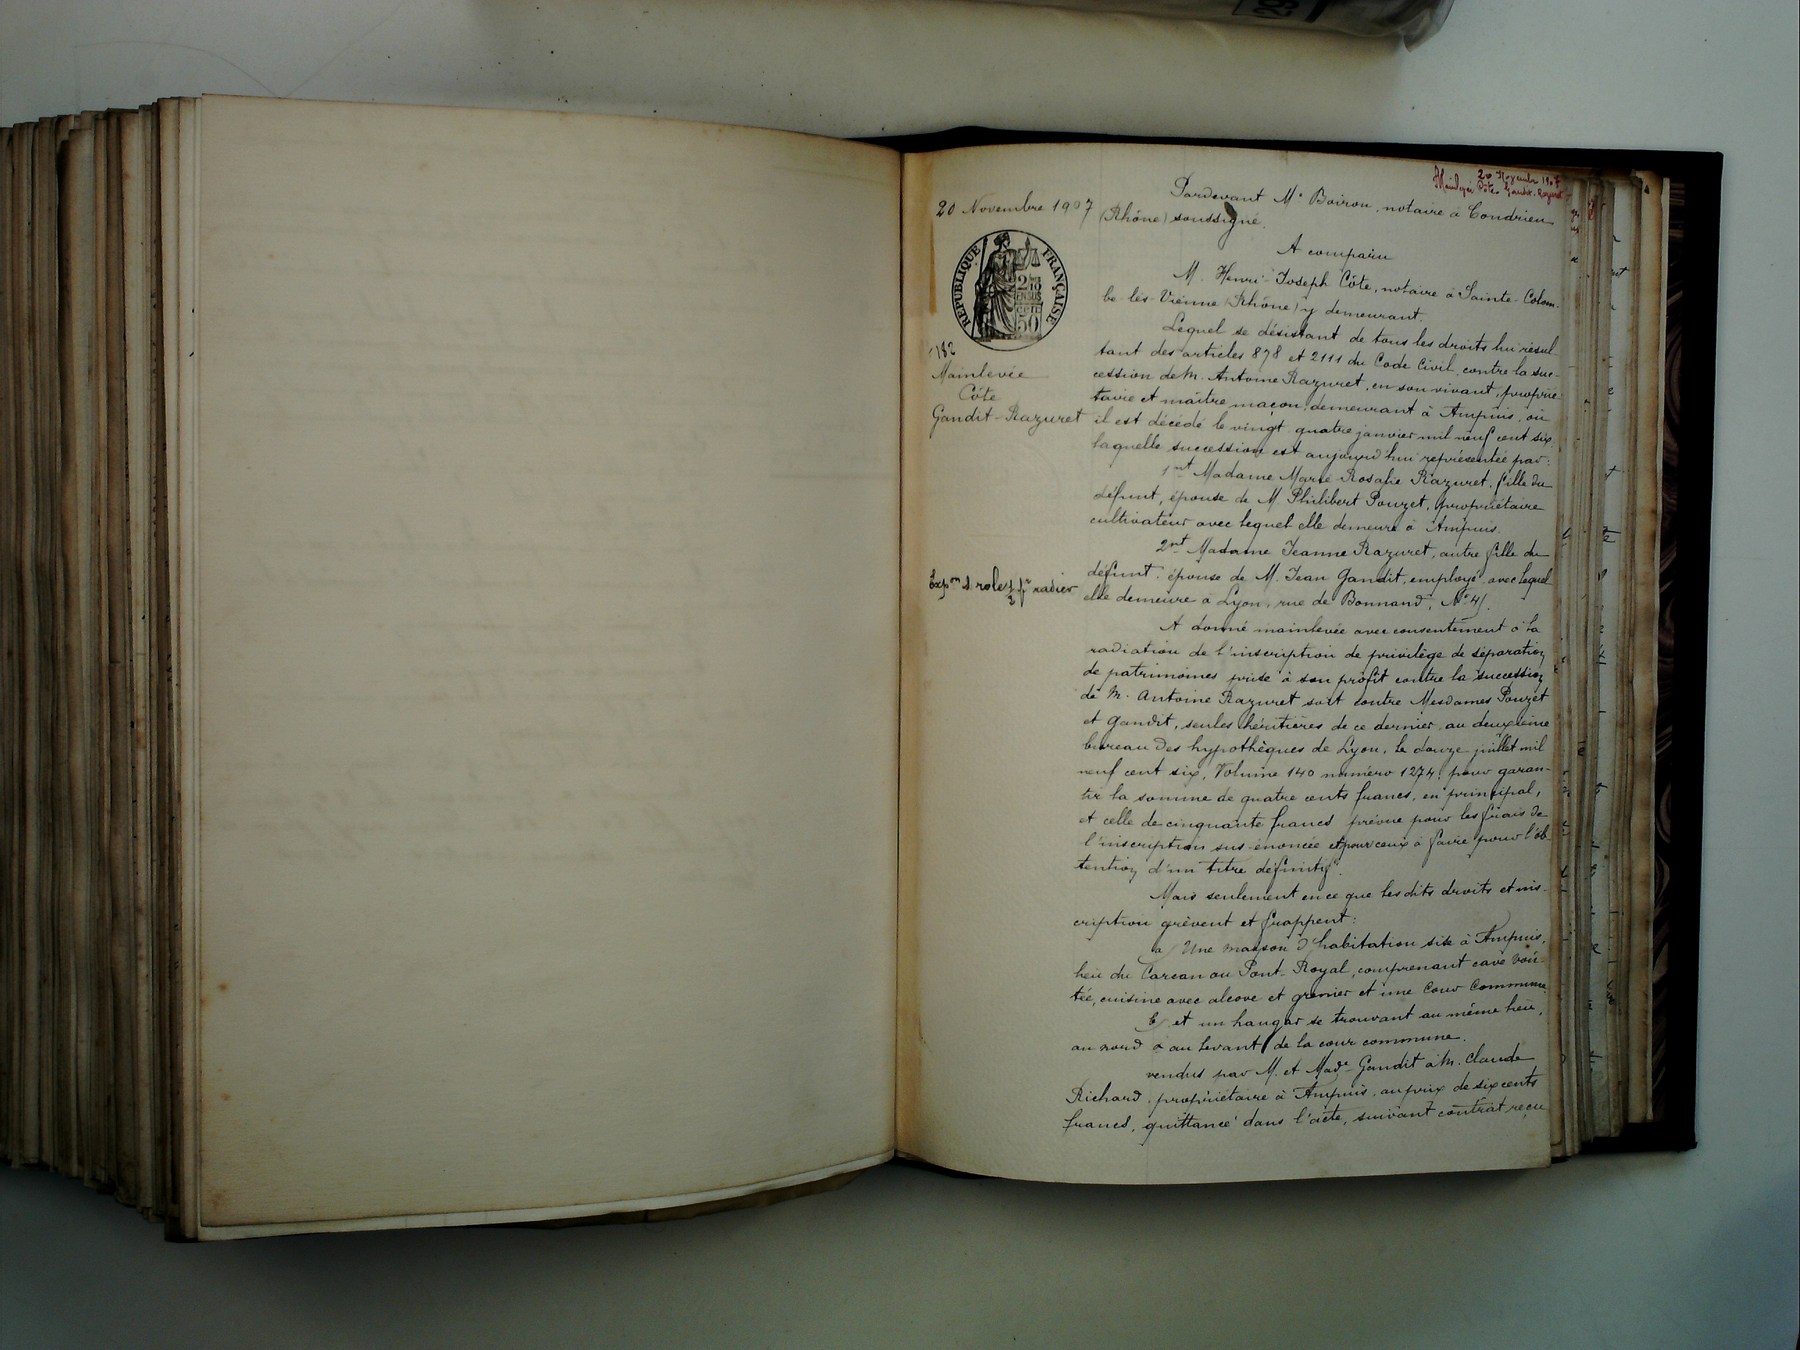 20 Novembre 1907
Mainlevée Côte Gandit-Razuret
20 Novembre 1907
RÉPUBLIQUE FRANÇAISE
182
Mainlevée
Côte
Gandit-Razuret
Expon 2 roles 1/2 pr radier
Pardevant Me Boiron, notaire à Condrieu
(Rhône) soussigné.
A comparu
M. Henri-Joseph Côte, notaire à Sainte-Colom-
be-lès-Vienne (Rhône) y demeurant.
Lequel se désistant de tous les droits lui résul-
tant des articles 878 et 2111 du Code Civil, contre la suc-
cession de M. Antoine Razuret, en son vivant, proprié-
taire et maître maçon, demeurant à Ampuis, où
il est décédé le vingt quatre janvier mil neuf cent six,
laquelle succession est aujourd'hui représentée par:
1nt Madame Marie-Rosalie Razuret, fille du
défunt, épouse de M. Philibert Pouzet, propriétaire
cultivateur avec lequel elle demeure à Ampuis.
2nt Madame Jeanne Razuret, autre fille du
défunt, épouse de M. Jean Gandit, employé, avec lequel
elle demeure à Lyon, rue de Bonnand, No 41.
A donné mainlevée avec consentement à la
radiation de l'inscription de privilège de séparation
de patrimoines prise à son profit contre la succession
de M. Antoine Razuret soit contre Mesdames Pouzet
et Gandit, seules héritières de ce dernier, au deuxième
bureau des hypothèques de Lyon, le douze juillet mil
neuf cent six, Volume 140 numéro 1274, pour garan-
tir la somme de quatre cents francs, en principal,
et celle de cinquante francs prévue pour les frais de
l'inscription sus-énoncée et pour ceux à faire pour l'ob-
tention d'un titre définitif.
Mais seulement en ce que les dits droits et ins-
cription grèvent et frappent:
a/ Une maison d'habitation sise à Ampuis,
lieu du Carcan ou Pont-Royal, comprenant cave voû-
tée, cuisine avec alcove et grenier et une Cour Commune.
b/ et un hangar se trouvant au même lieu,
au nord & au levant de la cour commune.
vendus par M. et Made Gandit à M. Claude
Richard, propriétaire à Ampuis, au prix de six cents
francs, quittancé dans l'acte, suivant contrat reçu